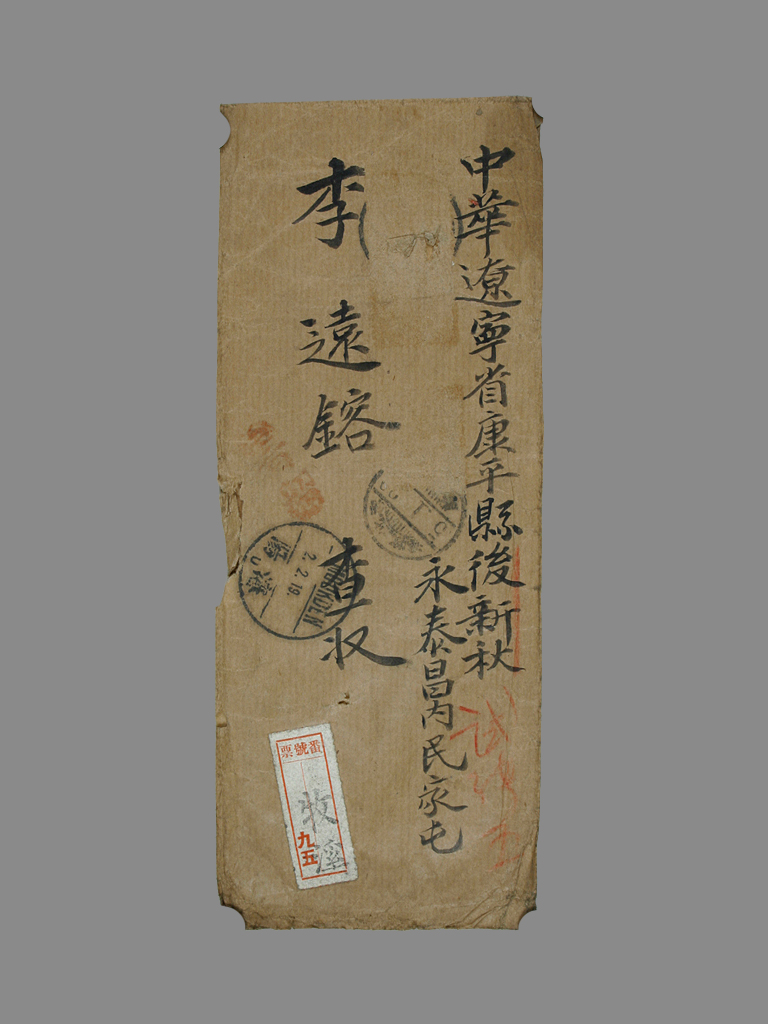 中華遼寧省康平縣後新秋
永泰昌內民家屯
李遠鎔 查收
2.2.19
番號票
九五